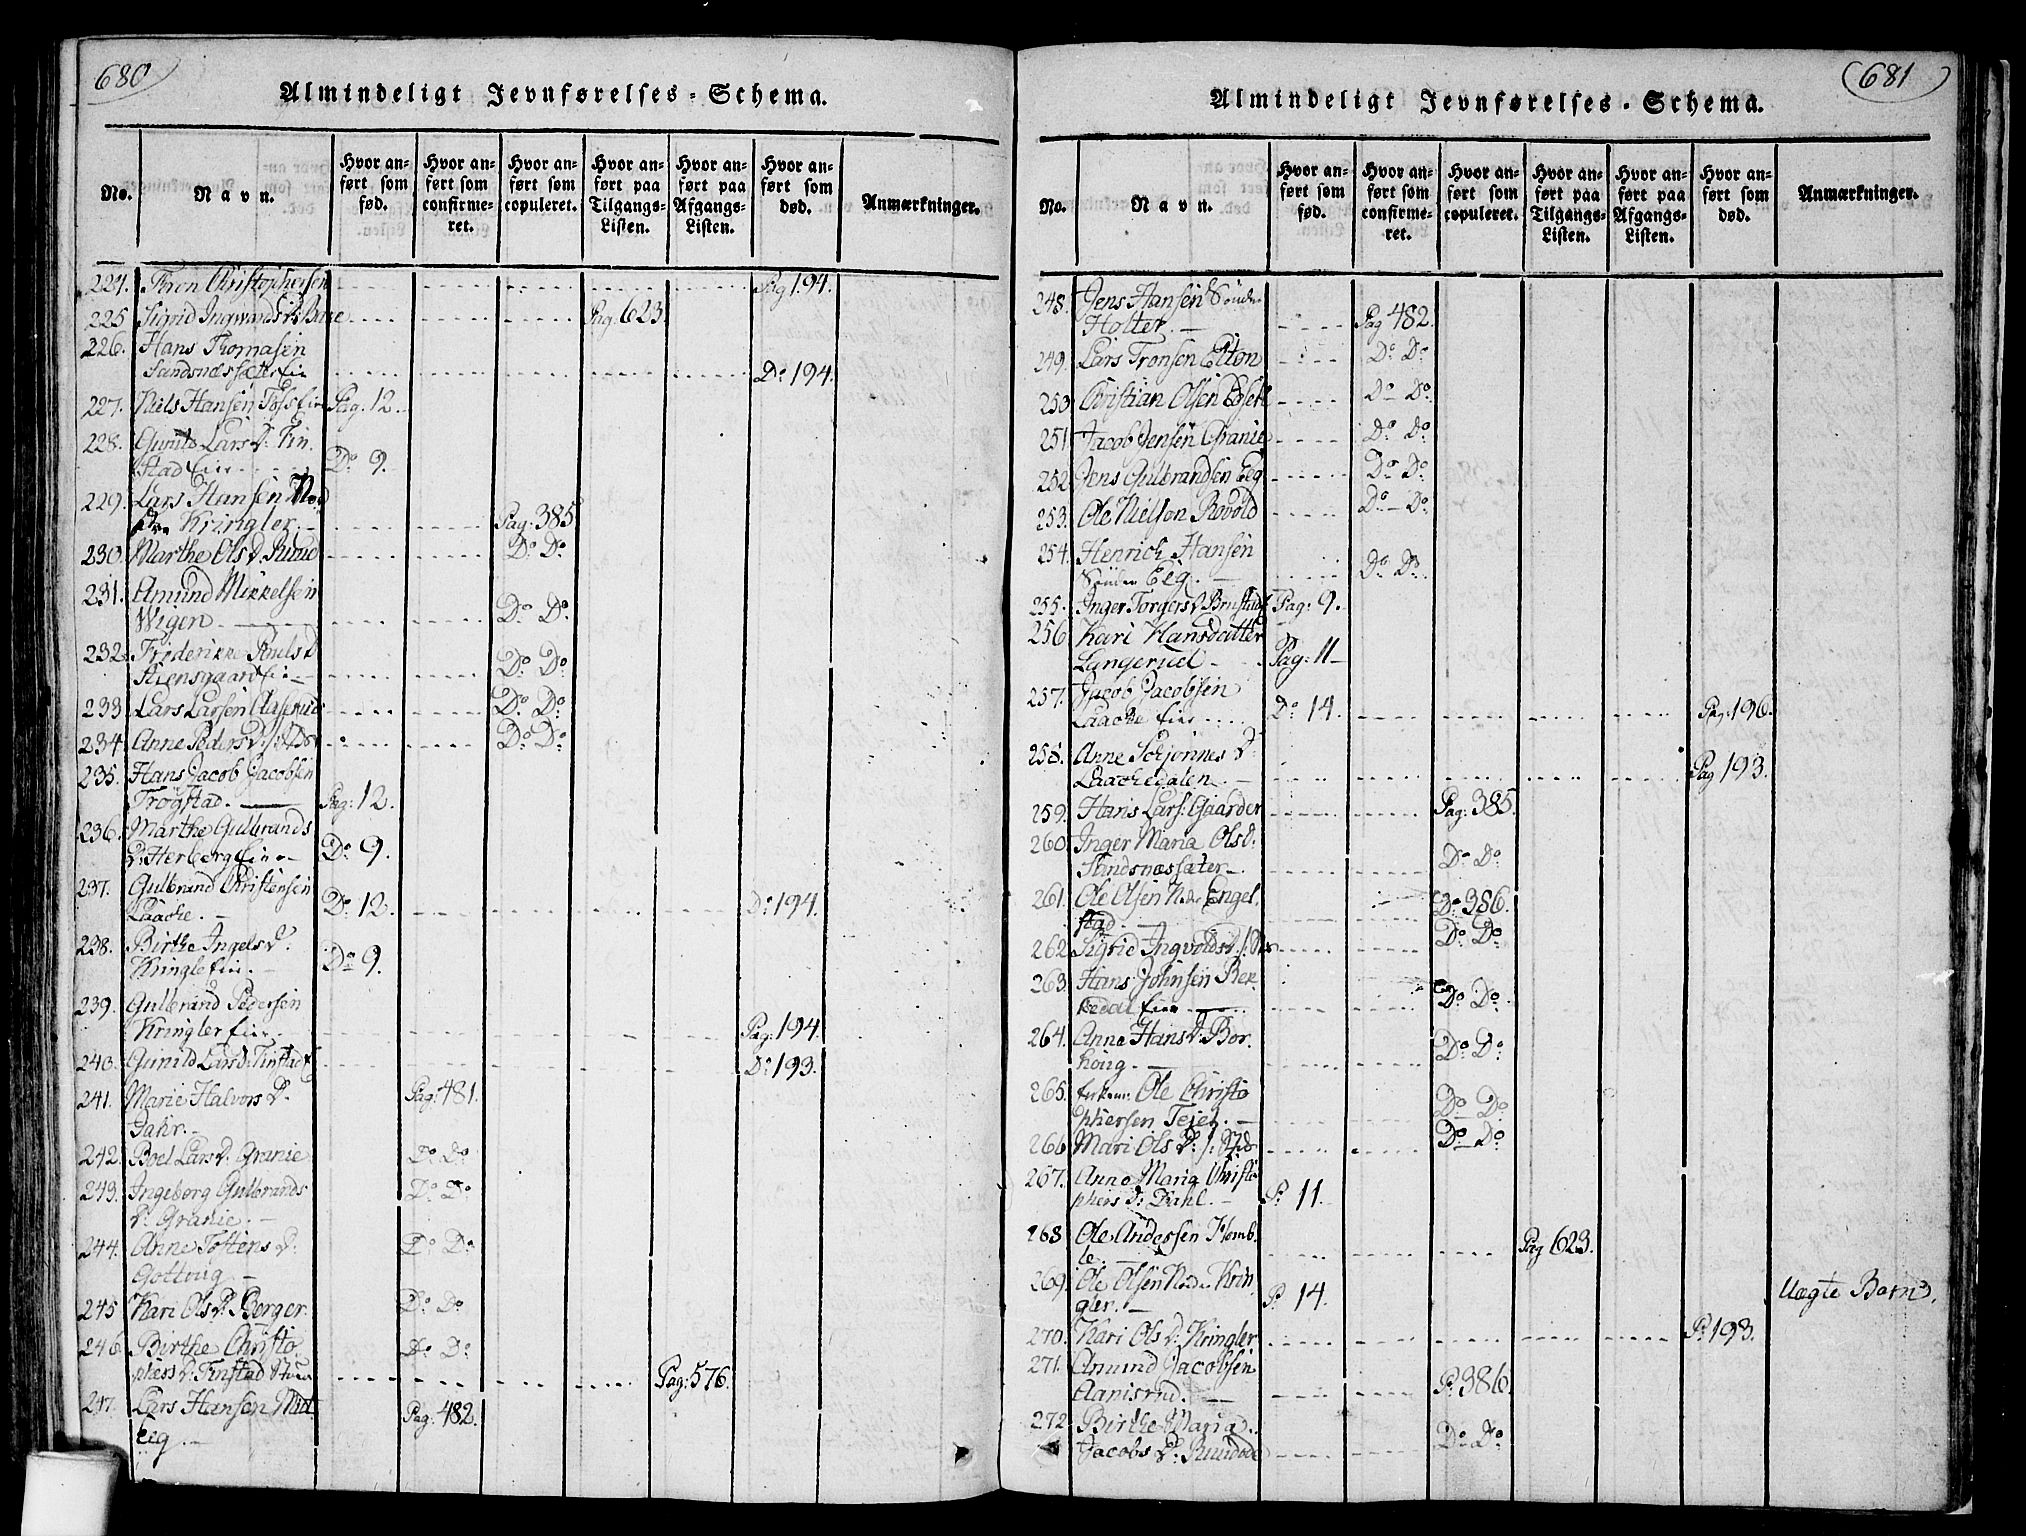 680
Almindeligt Jevnførelses-Schema.
No.
Navn.
Hvor anført som fød.
Hvor anført som confirmeret.
Hvor anført som copuleret.
Hvor anført paa Tilgangs-Listen.
Hvor anført paa Afgangs-Listen.
Hvor anført som død.
Anmærkninger.
224. Tron Christophersen Pag 194.
225 Sigrid Ingwards Pag. 623.
226. Hans Thomasen
Sandsnæssæter Eie Do 194.
227. Niels Hansen Pag. 12.
228. Gunild Lars D. Tin
stad Eie Do 9.
229. Lars Hansen
Kringler. Pag: 385
230. Marthe Ols D. Do Do
231. Amund Mikkelsen
Wigen Do Do
232. Friderikke
Stensgaard Eie Do Do
233 Lars Larsen Aaserud Do Do
234. Anne Peders D. Do Do
235. Hans Jacob Jacobsen
Trøgstad. Pag: 12.
236. Marthe Gulbrands
D. Herberg Eie Do 9.
237. Gulbrand Christensen
Laache. Do 12. Do 194.
238. Birthe Ingels D.
Kringler Eie. Do 9.
239. Gulbrand Pedersen
Kringler Eie. Pag: 194
240. Gunild Lars D. Tinstad E Do 193.
241. Marie Halvors D.
Dahr. Pag: 481.
242. Boel Lars D. Granie Do Do
243. Ingeborg Gulbrands
D. Granie. Do Do
244. Anne Toftens D.
Gottvig Do Do
245 Kari Ols D. Berger. Do Do
246. Birthe Christo
phers D. Tinstad Do Do Pag: 576.
247. Lars Hansen Mel
Eeg. Pag: 482.
681
Almindeligt Jevnførelses-Schema.
No.
Navn.
Hvor anført som fød.
Hvor anført som confirmeret.
Hvor anført som copuleret.
Hvor anført paa Tilgangs-Listen.
Hvor anført paa Afgangs-Listen.
Hvor anført som død.
Anmærkninger.
248. Jens Hansen Sønder
Holter. Pag 482.
249. Lars Tronsen Elton Do Do
250 Christian Olsen Do Do
251 Jacob Jensen Granie Do Do
252 Jens Gulbrandsen Eeg Do Do
253. Ole Nielsen Do Do
254. Henrich Hansen
Sønder Eeg. Do Do
255. Inger Torgers D. Pag: 9.
256 Kari Hansdatter
Langerud Pag: 11
257. Jacob Jacobsen
Laache Eie Do 14. Pag: 196.
258. Anne Schjønnes D.
Laachedalen Pag 193.
259. Hans Lars. Gaarder Pag: 385.
260. Inger Maria Ols D.
Sandsnæssæter Do Do
261. Ole Olsen Nedr Engel
stad Do 386.
262. Sigrid Ingvolds D. Do Do
263. Hans Johnsen Bek
kedal Eie Do Do
264. Anne Hans D. Bor
houg Do Do
265. Enkem: Ole Christo
phersen Teien. Do Do
266 Mari Ols D. Do Do
267. Anne Maria Christo
phers D. Dahl. P. 11.
268 Ole Andersen Homb
le. Pag 623.
269. Ole Olsen Nedr Krin
gler. P. 14. Uægte Barn.
270. Kari Ols D. Kringler P. 193.
271. Amund Jacobsen
Aanisrud. P. 386.
272. Birthe Maria
Jacobs D. Do Do